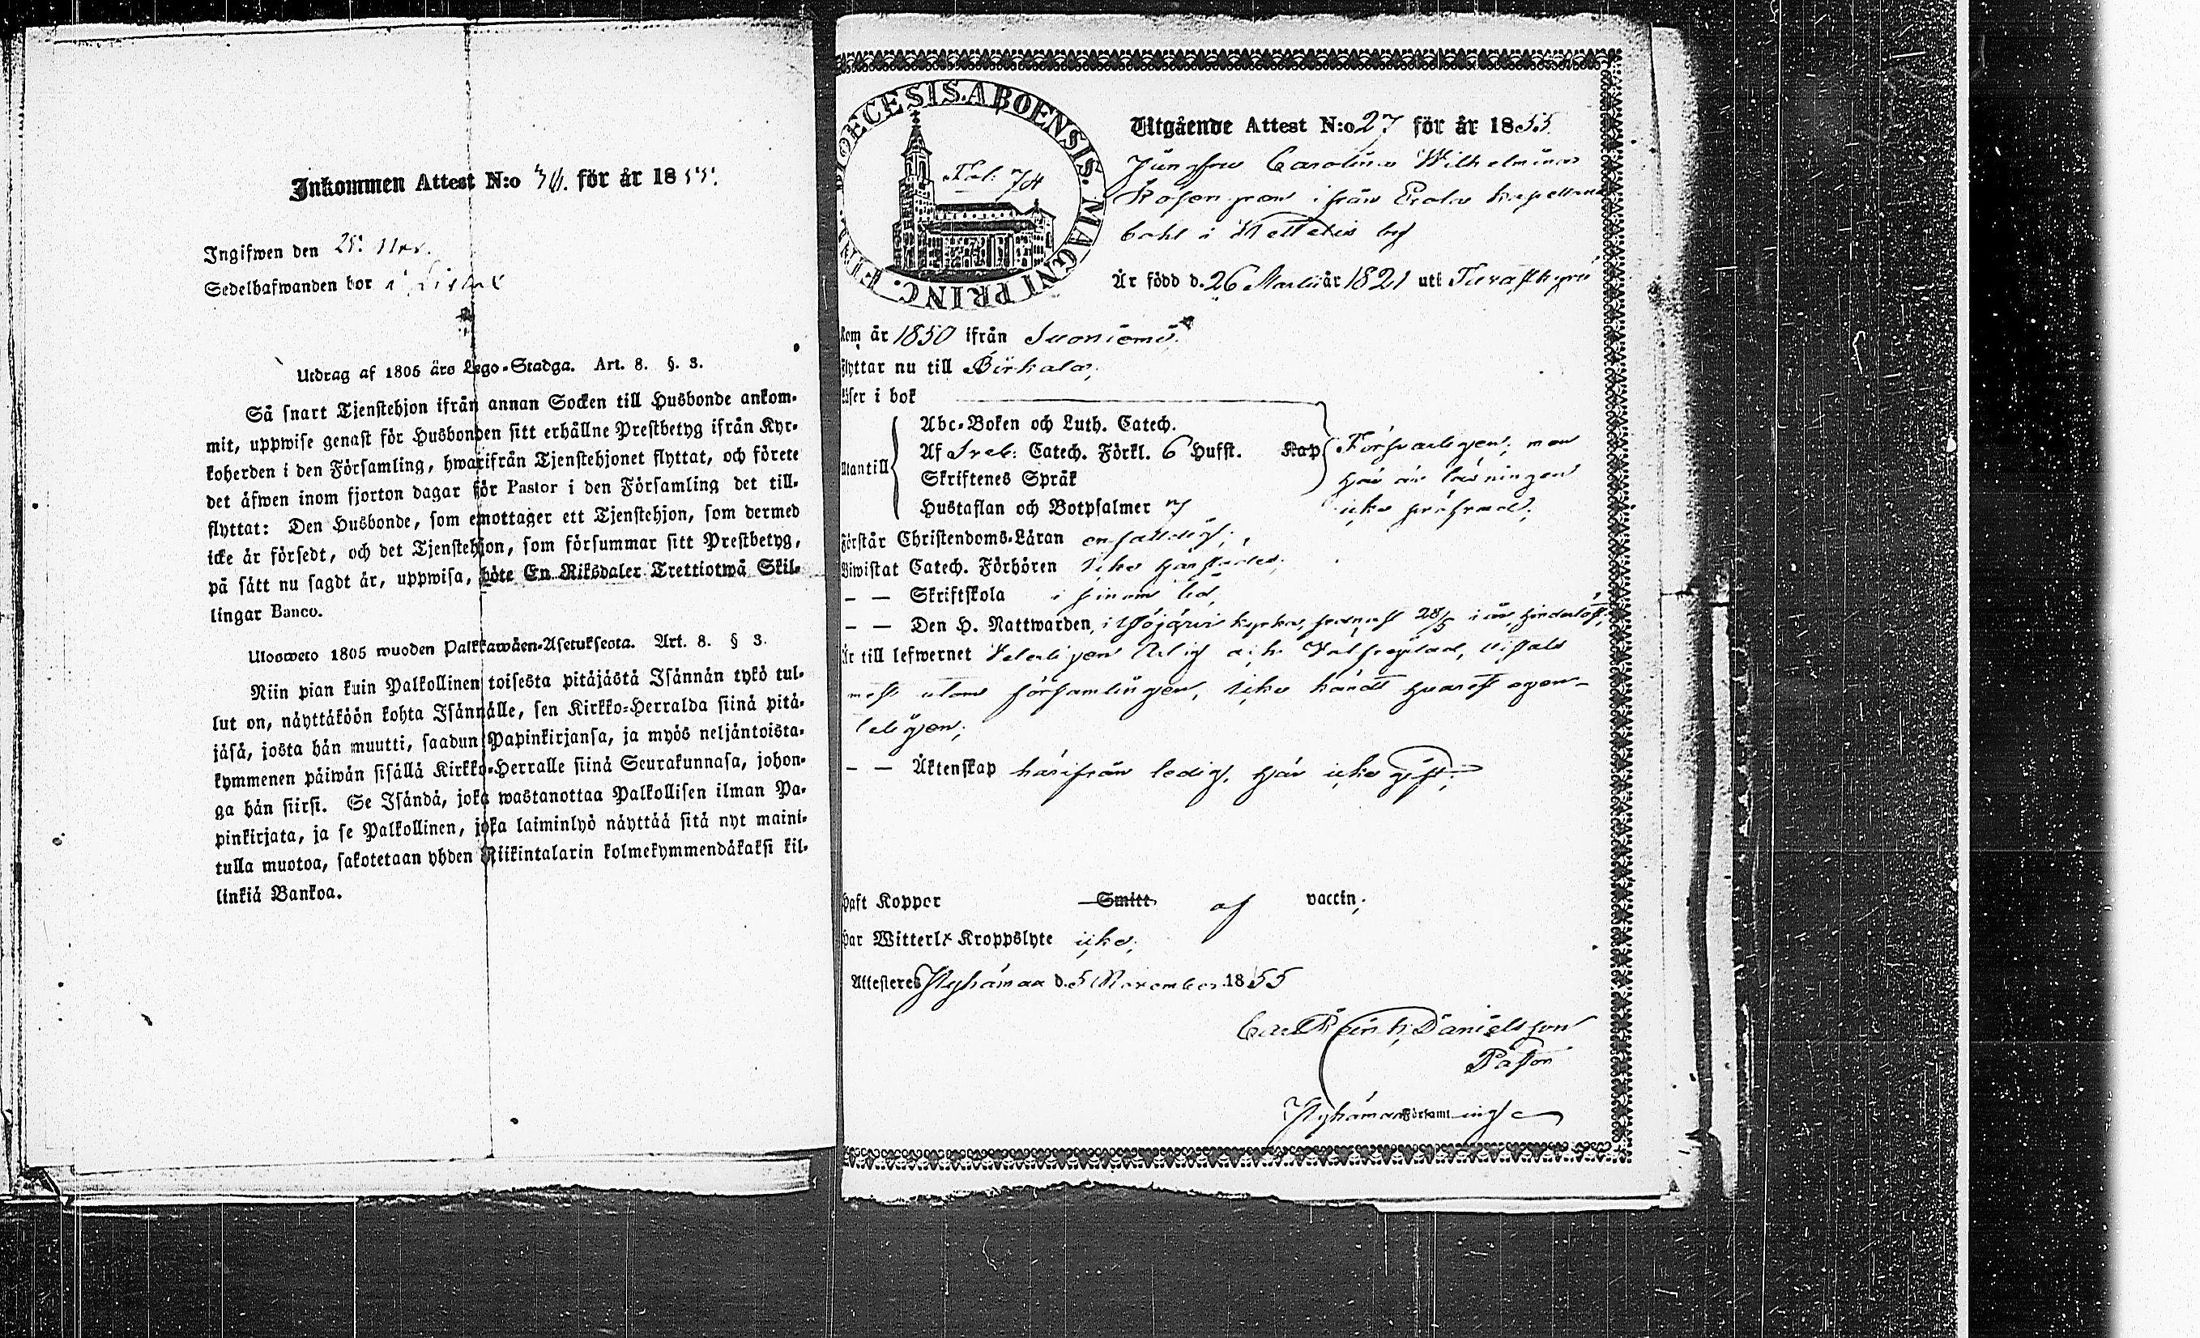 Inkommen Attest N:o 70. för år 1855.
Ingifwen den 25. Nov.
Sedelhafwanden bor i
Utdrag af 1805 års Lego-Stadga. Art. 8. §. 3.
Så snart Tjenstehjon ifrån annan Socken till Husbonde ankom-
mit, uppwise genast för Husbonden sitt erhållne Prestbetyg ifrån Kyr-
koherden i den Församling, hwarifrån Tjenstehjonet flyttat, och förete
det äfwen inom fjorton dagar för Pastor i den Församling det till-
flyttat: Den Husbonde, som emottager ett Tjenstehjon, som dermed
icke är försedt, och det Tjenstehjon, som försummar sitt Prestbetyg,
på sätt nu sagdt är, uppwisa, böte En Riksdaler Trettiotwå Skil-
lingar Banco.
Ulosweto 1805 wuoden Palkkawäen-Asetuksesta. Art. 8. § 3.
Niin pian kuin Palkollinen toisesta pitäjästä Isännän tykö tul-
lut on, näyttäköön kohta Isännälle, sen Kirkko-Herralda siinä pitä-
jäsä, josta hän muutti, saadun Papinkirjansa, ja myös neljäntoista-
kymmenen päiwän sisällä Kirkko-Herralle siinä Seurakunnasa, johon-
ga hän siirsi. Se Isändä, joka wastanottaa Palkollisen ilman Pa-
pinkirjata, ja se Palkollinen, joka laiminlyö näyttää sitä nyt maini-
tulla muotoa, sakotetaan yhden Riikintalarin kolmekymmendäkaksi kil-
linkiä Bankoa.
DIOECESIS. ABOENSIS. MAGNI PRINC. FINL.
Utgående Attest N:o 27 för år 1855
Jungfru Carolina Wilhelmina
ifrån
by
Är född d. 26 Martii år 1821 uti Tavastkyrö
kom år 1850 ifrån Suoniemi
flyttar nu till Birkala,
läser i bok
Abc-Boken och Luth. Catech.
Af Sveb: Catech. Förkl. 6 Hufst. Kap Försvarligen, men
utantill Skriftenes Språk här är läsningen
Hustaflan och Botpsalmer icke pröfvad;
förstår Christendoms-Läran enfaldigt;
Biwistat Catech. Förhören icke härstädes
– – Skriftskola i sinom tid
– – Den H. Nattwarden, i Ylöjärvi kyrka, senast 28/5 i år,
Är till lefwernet Veterligen ärlig och välfrejdad, vistats
mest utom församlingen, icke känd
ligen;
– – Äktenskap härifrån ledig, här icke gift;
haft Kopper Smitt af vaccin,
har Witterl. Kroppslyte icke.
Attesteres Kyhämaa d. 5 November 1855
Danielsson
Pastor
Församlings